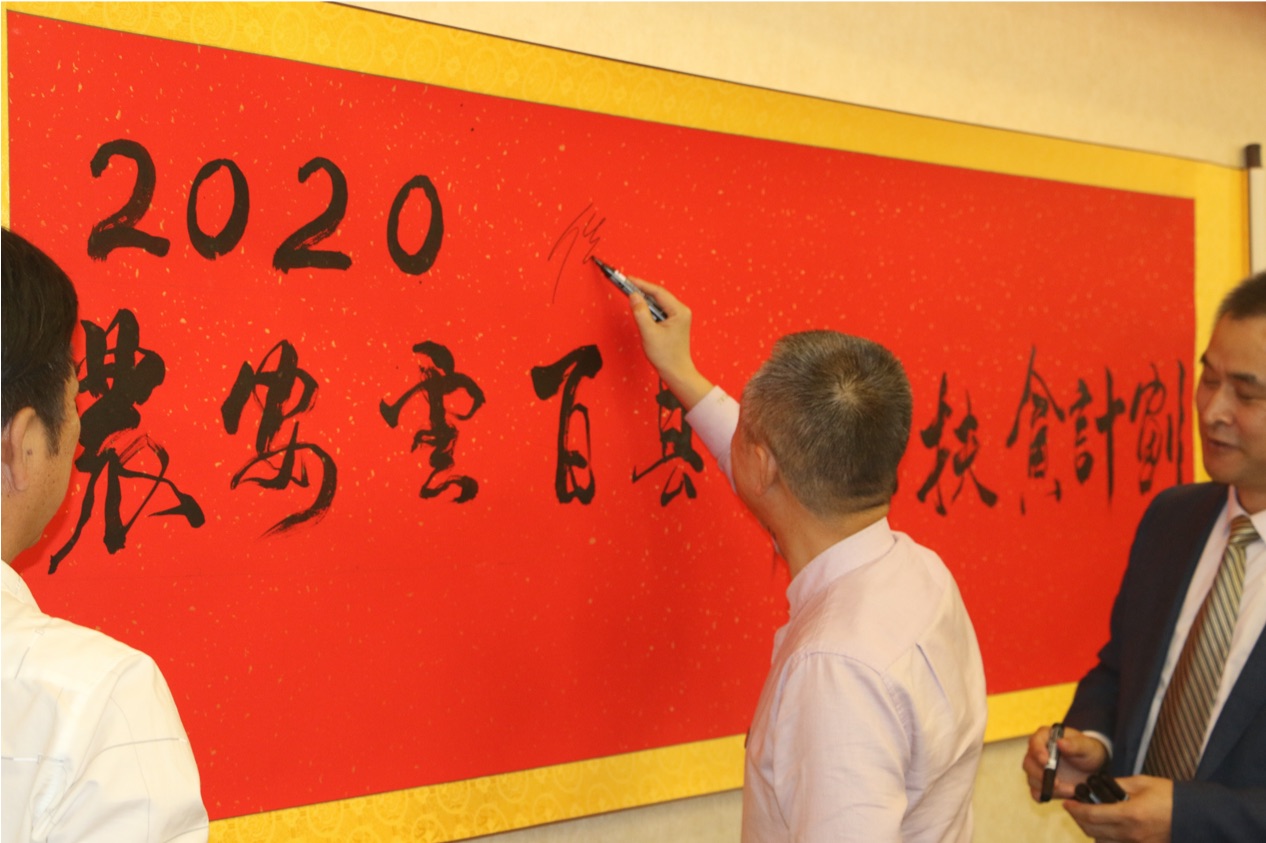 2020
農安雲百县 扶貧計劃